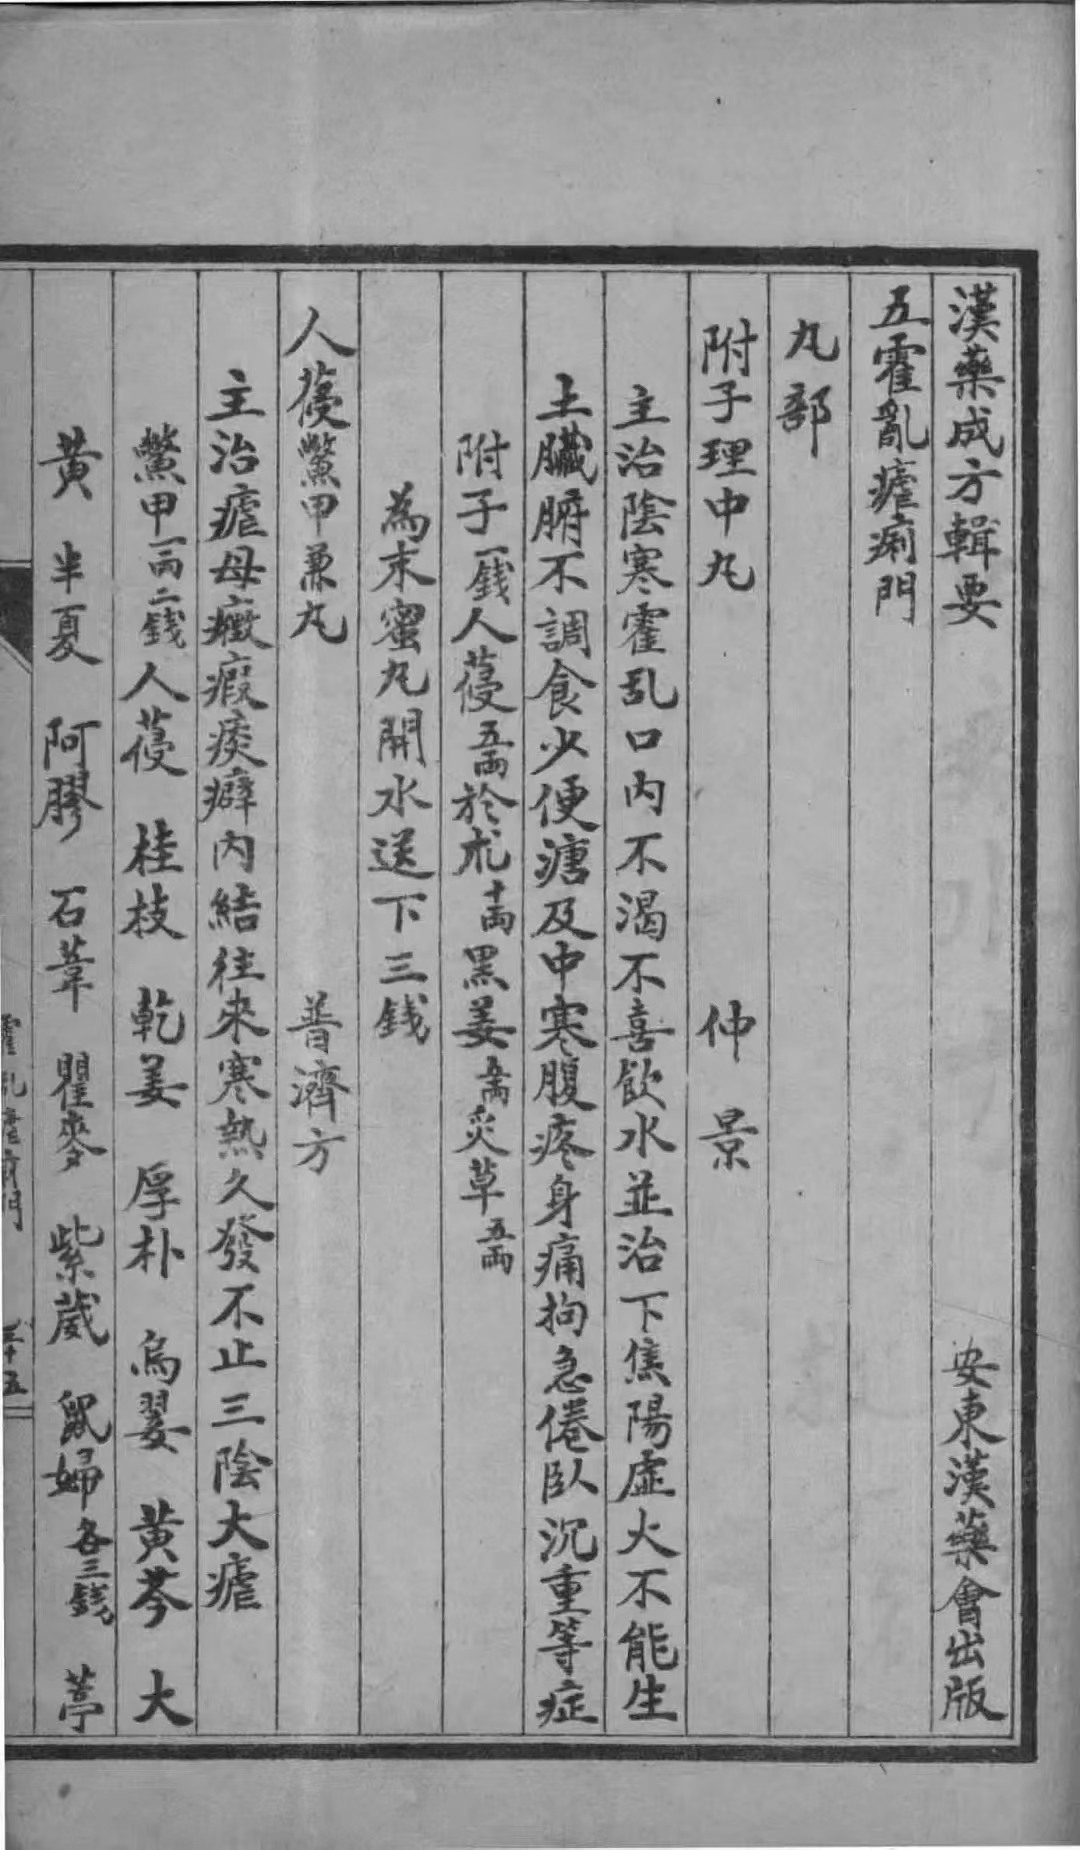 漢藥成方輯要　安東漢藥會出版
五霍亂瘧痢門
丸部
附子理中丸　仲景
主治陰寒霍乱口内不渴不喜飲水並治下焦陽虛火不能生
土臟腑不調食少便溏及中寒腹疼身痛拘急倦臥沉重等症
附子一錢人葠五兩於朮十兩黑姜五兩炙草五兩
為末蜜丸開水送下三錢
人葠鱉甲兼丸　普濟方
主治瘧母癥瘕痰癖内結往來寒熱久發不止三陰大瘧
鱉甲一兩二錢人葠　桂枝　乾姜　厚朴　烏翣　黃芩　大
黃　半夏　阿膠　石葦　瞿麥　紫葳　鼠婦各三錢　葶
霍乱瘧痢門　三十五